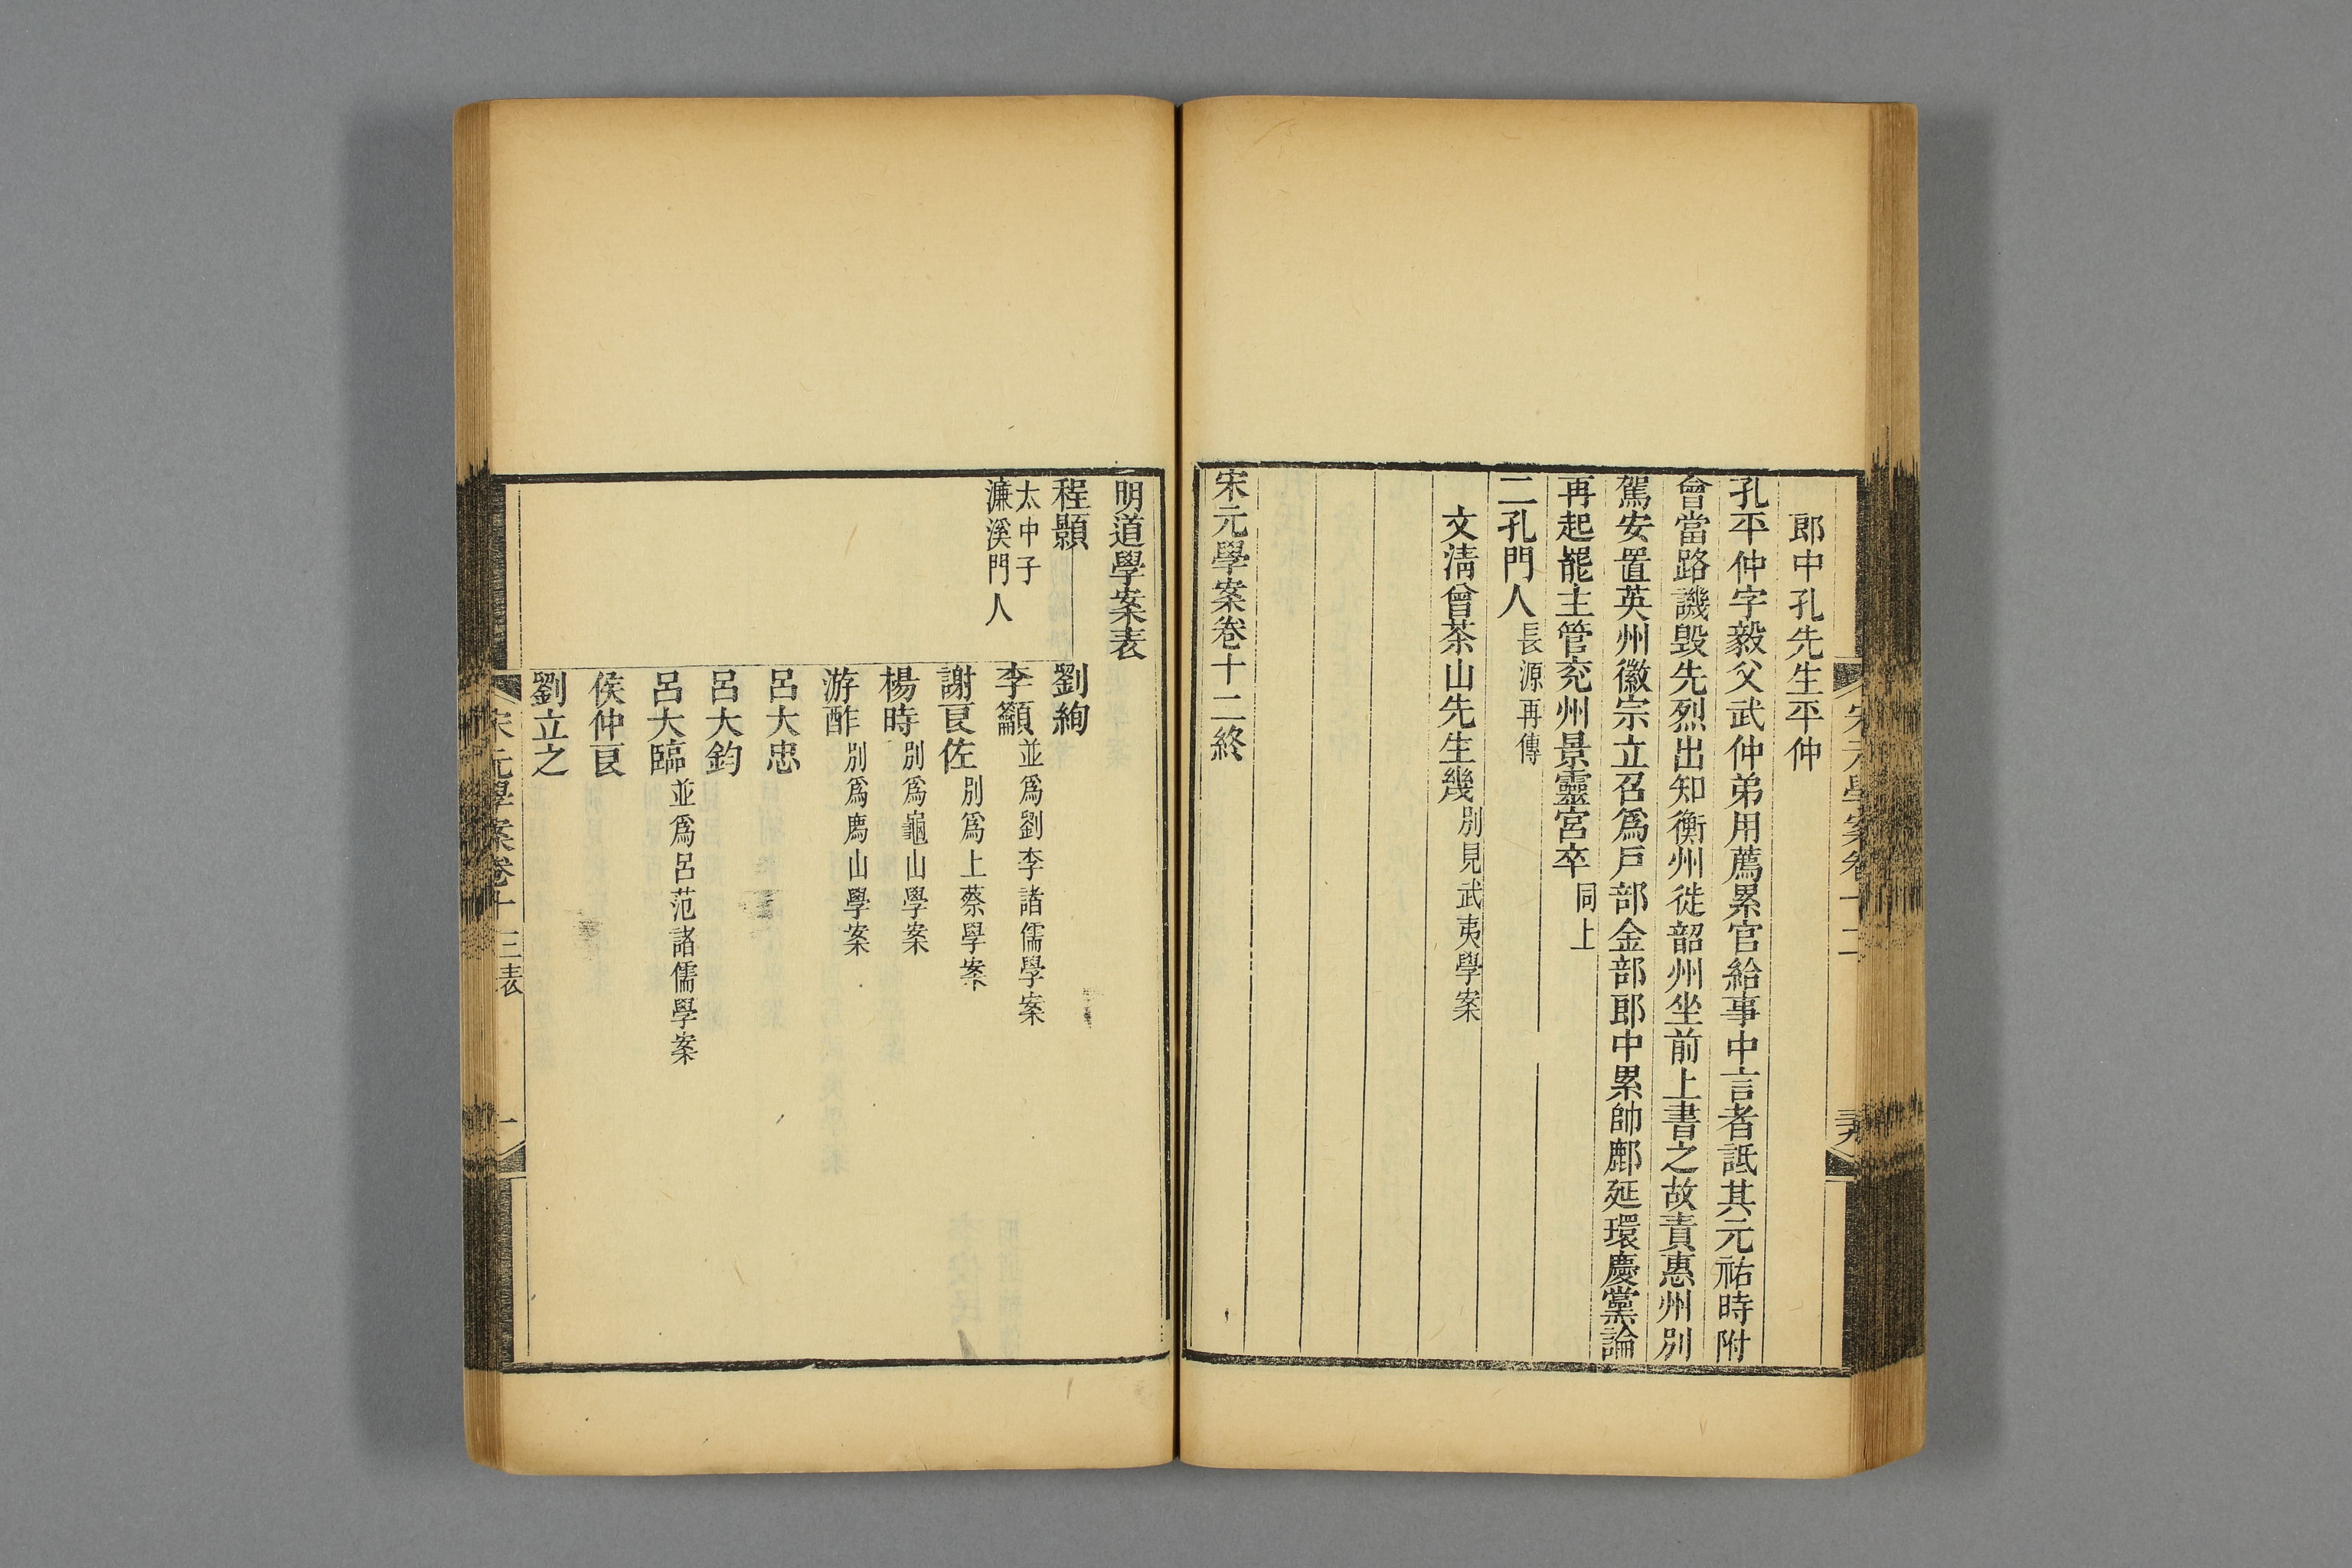 郎中孔先生平仲
孔平仲字毅父武仲弟用薦累官給事中言者詆其元祐時附
會當路譏毀先烈出知衡州徙韶州坐前上書之故責惠州別
駕安置英州徽宗立召爲戸部金部郎中累帥鄜延環慶黨論
再起罷主管兗州景靈宮卒同上
二孔門人長源再傳
文淸曾茶山先生幾別見武夷學案
宋元學案卷十二終
宋元學案卷十二
明道學案表
程顥
太中子
濂溪門人
劉絢
李籲並爲劉李諸儒學案
謝良佐別爲上蔡學案
楊時別爲龜山學案
游酢別爲廌山學案
呂大忠
呂大鈞
呂大臨並爲呂范諸儒學案
侯仲良
劉立之
宋元學案卷十三表
一